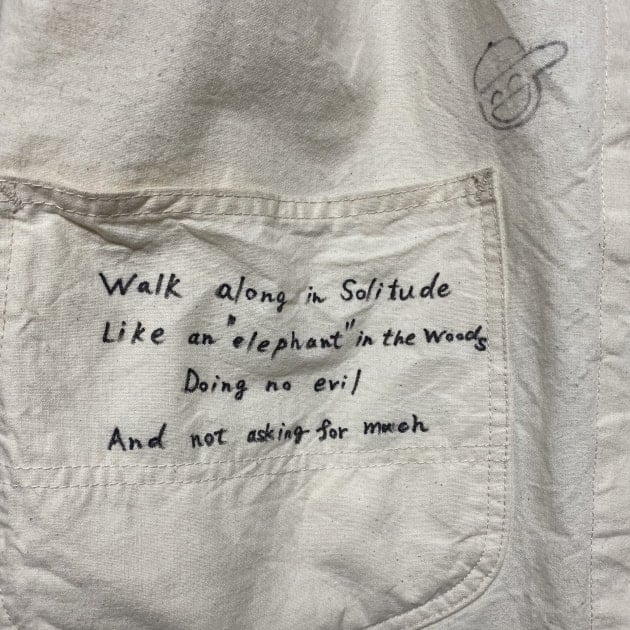 Walk along in Solitude
Like an "elephant" in the woods
Doing no evil
And not asking for much